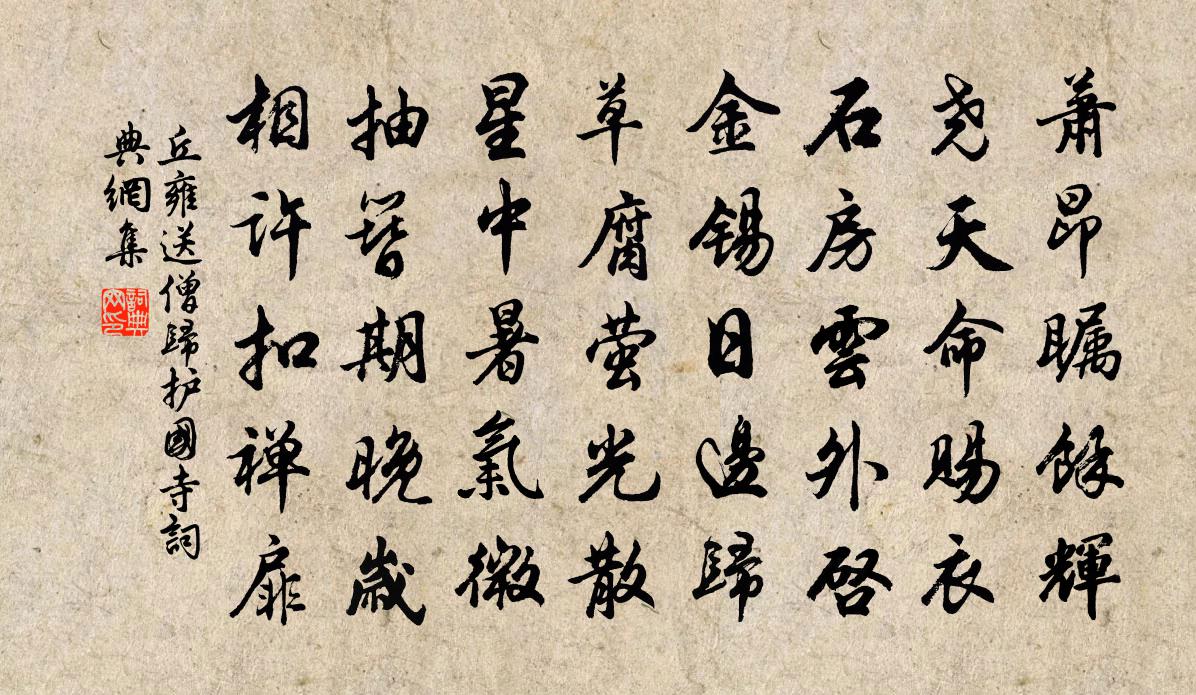 萧昂瞩餘輝
尧天命赐衣
石房雲外啓
金锡日邊歸
草腐萤光散
星中暑氣微
抽簪期晚歲
相许扣禅扉
丘雍送僧歸护國寺詞
典網集
詞典
网印